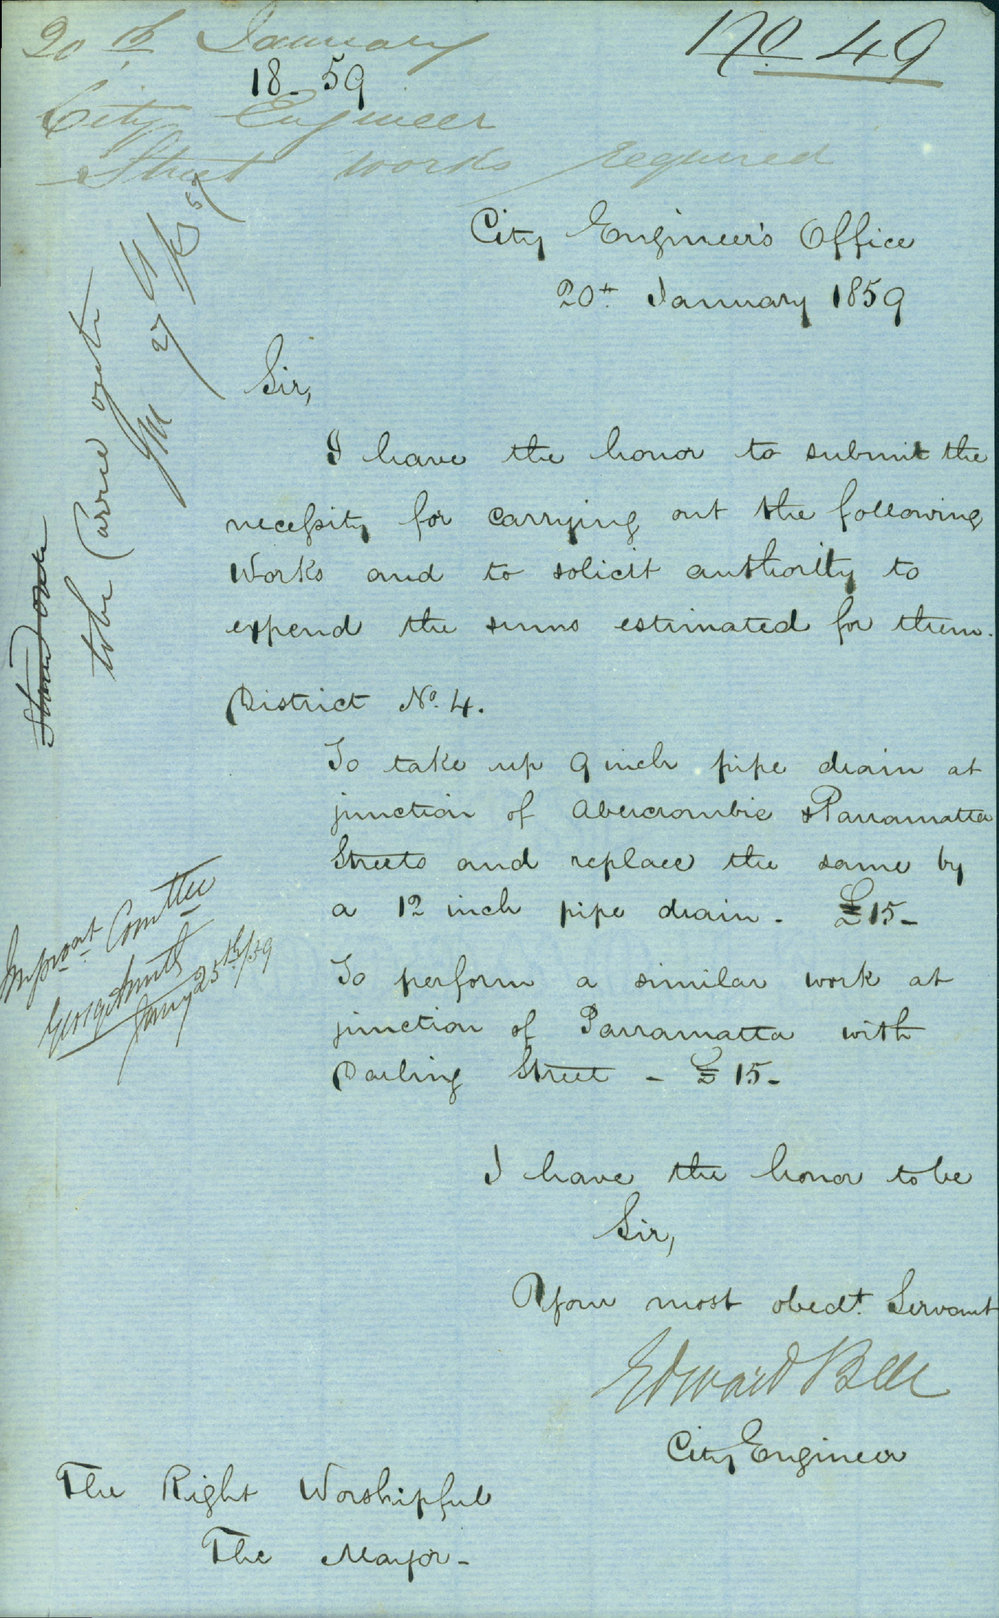 20th January
No 49
18-59
City Engineer
Street works required
City Engineer's Office
20th January 1859
Sir,
I have the honor to submit the
necessity for carrying out the following
Works and to solicit authority to
expend the sums estimated for them.
District No. 4.
To take up 9 inch pipe drain at
junction of Abercrombie & Parramatta
Streets and replace the same by
a 12 inch pipe drain - £15-
To perform a similar work at
junction of Parramatta with
Darling Street - £15-
I have the honor to be
Sir,
Your most obedt. Servant
Edward Bell
City Engineer
The Right Worshipful
The Mayor-
to be Carried out
27
Improvt Committee
George Smith
Jany 25th/59